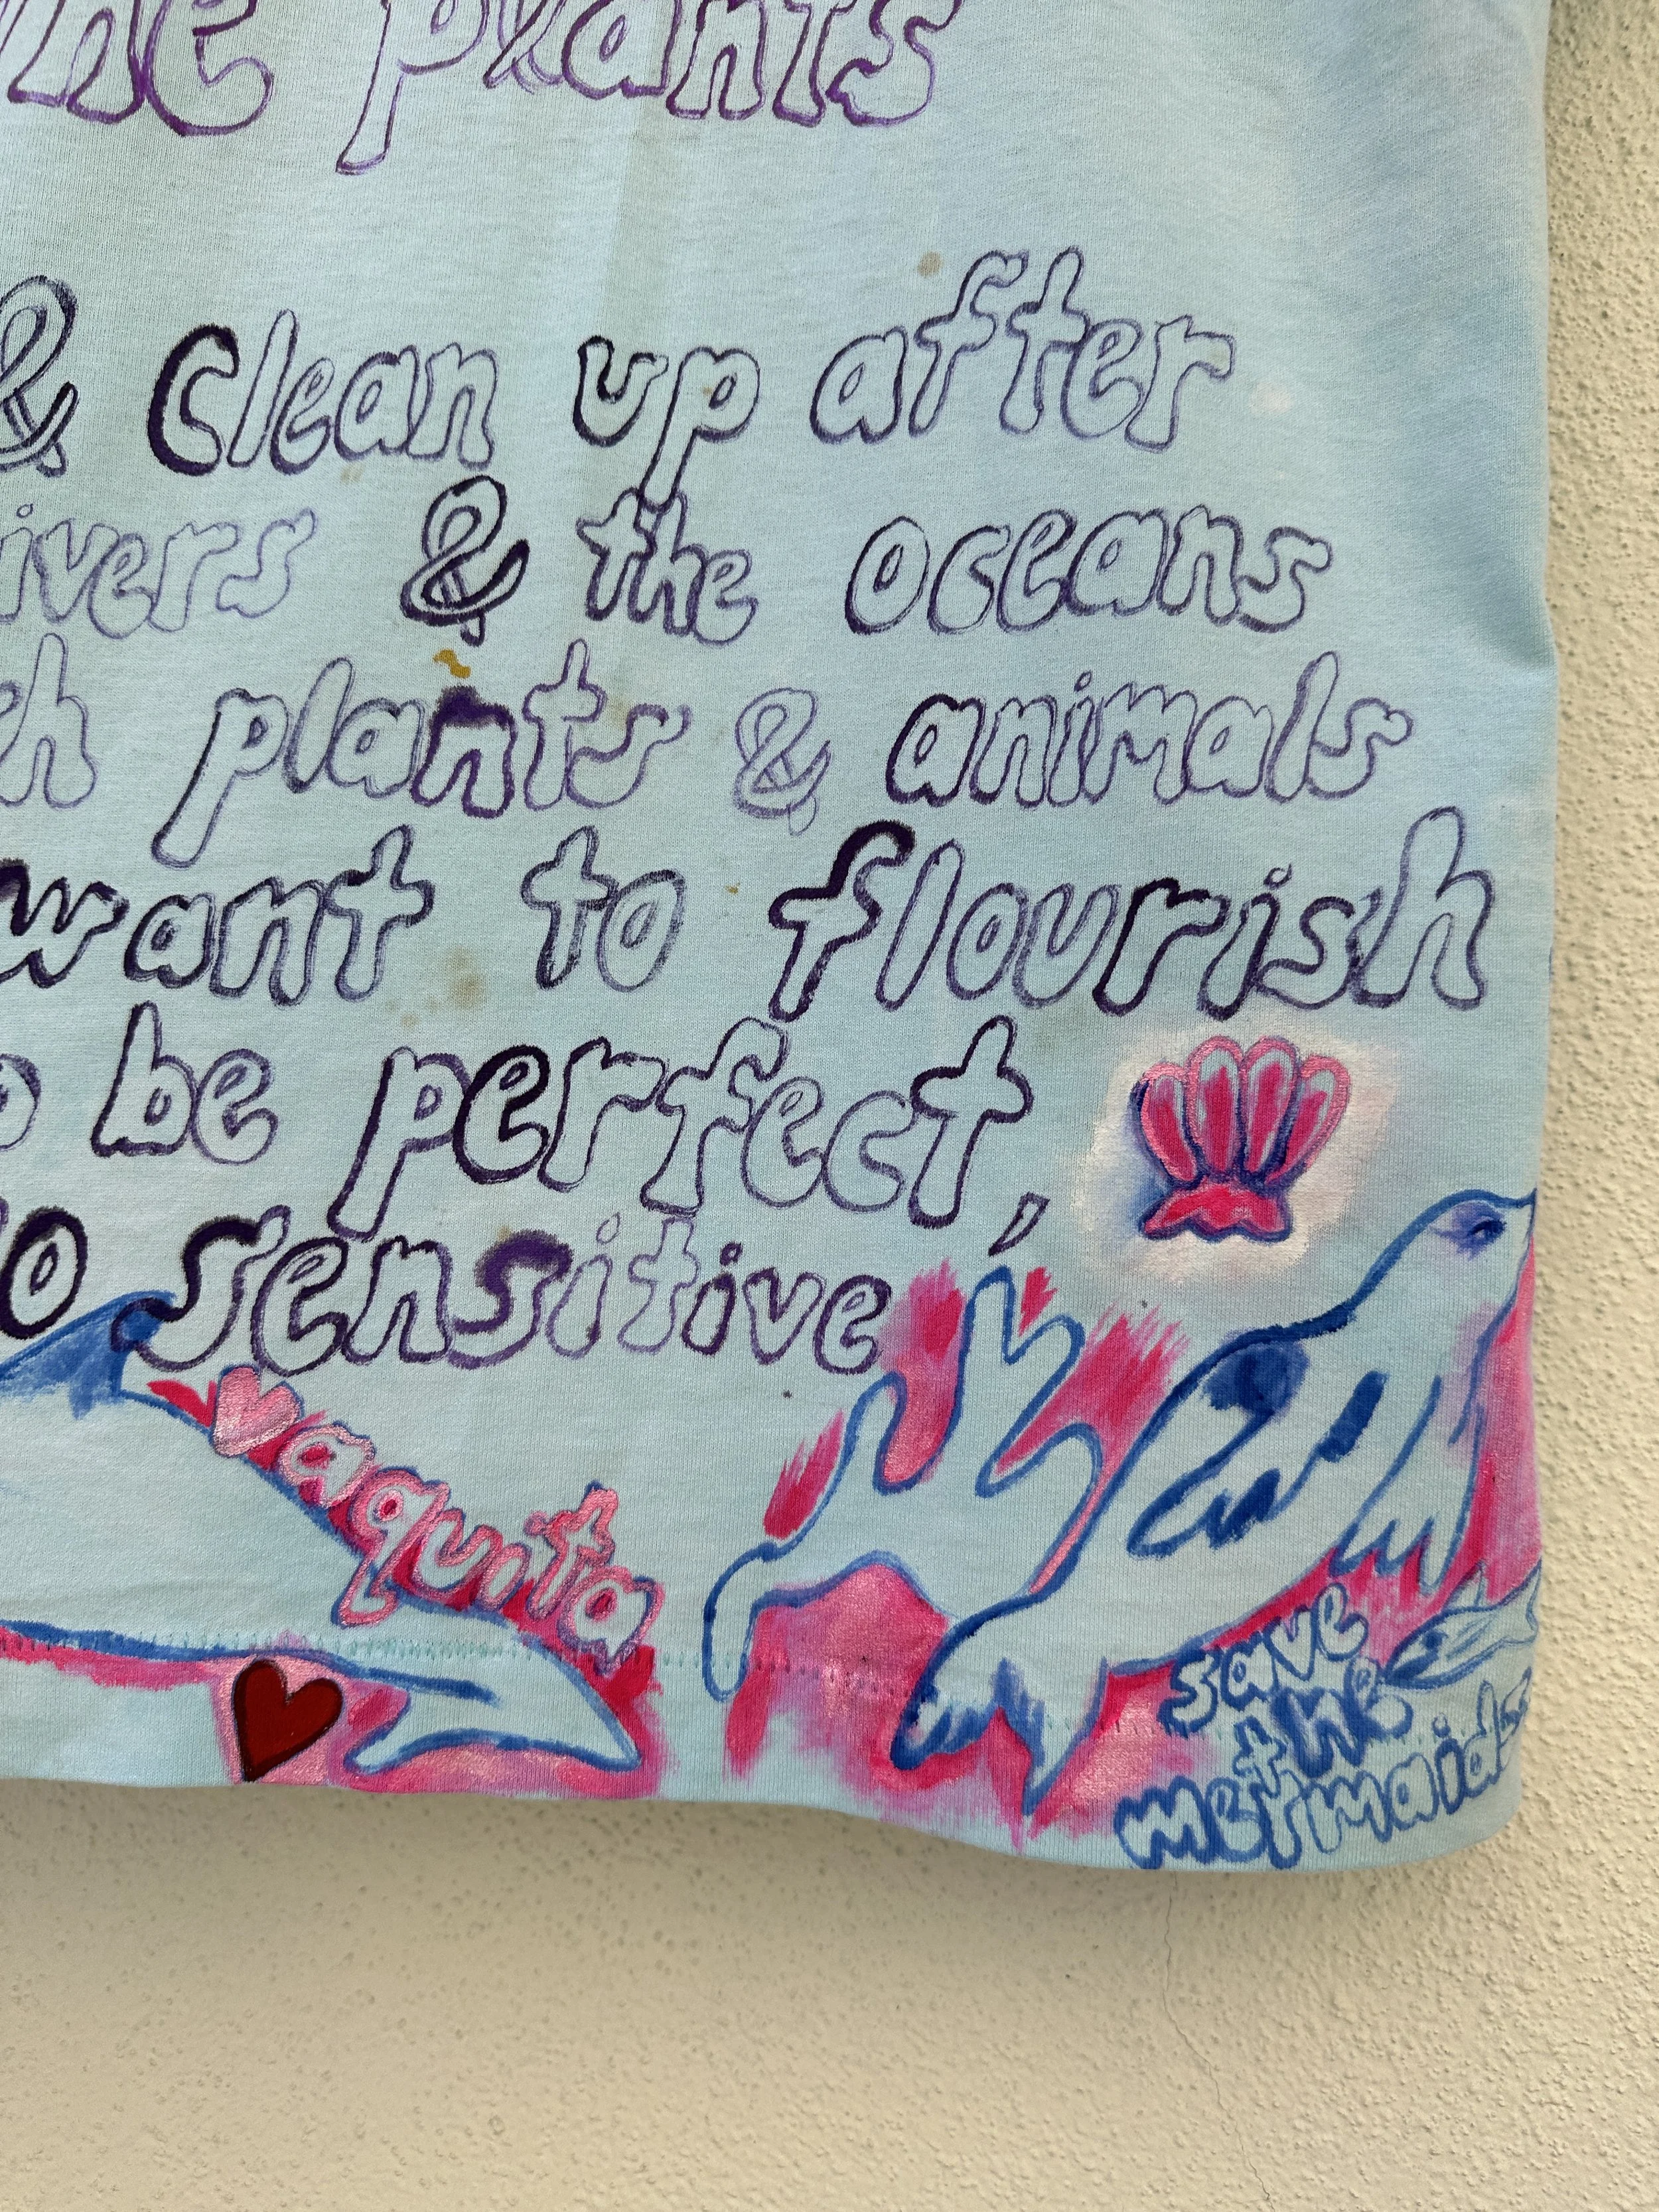 the plants
& clean up after
ivers & the oceans
h plants & animals
want to flourish
be perfect,
o sensitive
vaquita
save
the
mermaids